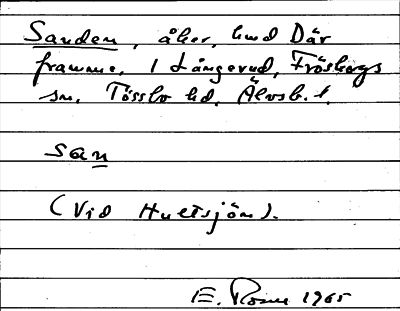 Sanden, åker, hmd Där
framme, 1 Långerud, Fröskogs
sn. Tössbo hd. Älvsb. l.
san
(Vid Hultsjön).
E. Rosm 1965